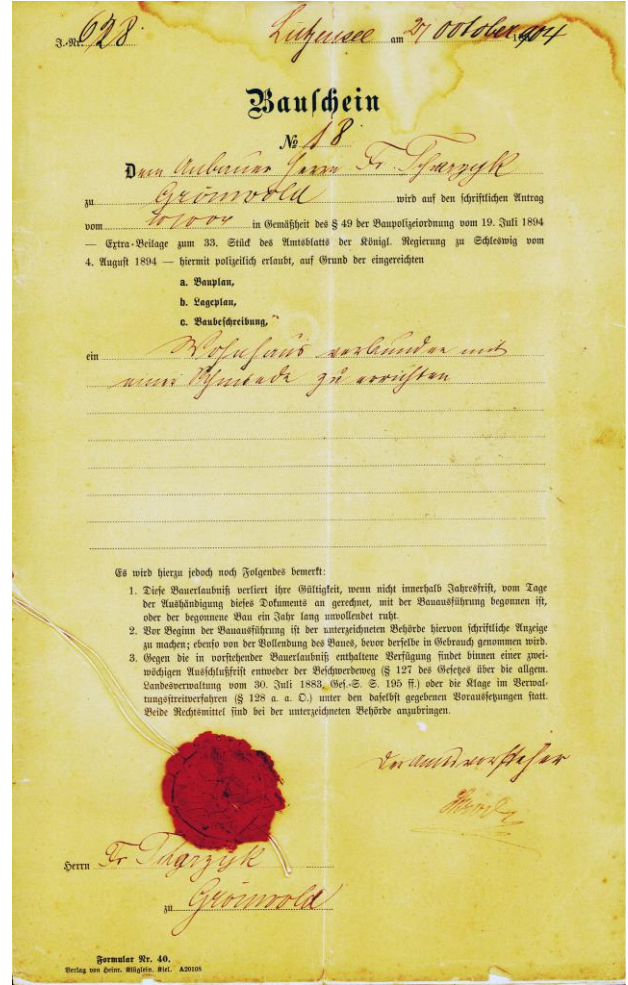 J.-Nr. 628 Lütjensee am 27 October 1904
Bauschein
№ 18
Dem Anbauer Herrn Fr.
zu Grönwold wird auf den schriftlichen Antrag
vom in Gemäßheit des § 49 der Baupolizeiordnung vom 19. Juli 1894
— Extra-Beilage zum 33. Stück des Amtsblatts der Königl. Regierung zu Schleswig vom
4. August 1894 — hiermit polizeilich erlaubt, auf Grund der eingereichten
a. Bauplan,
b. Lageplan,
c. Baubeschreibung,
ein Wohnhaus verbunden mit
einer Schmiede zu errichten
Es wird hierzu jedoch noch Folgendes bemerkt:
1. Diese Bauerlaubniß verliert ihre Gültigkeit, wenn nicht innerhalb Jahresfrist, vom Tage
der Aushändigung dieses Dokuments an gerechnet, mit der Bauausführung begonnen ist,
oder der begonnene Bau ein Jahr lang unvollendet ruht.
2. Vor Beginn der Bauausführung ist der unterzeichneten Behörde hiervon schriftliche Anzeige
zu machen; ebenso von der Vollendung des Baues, bevor derselbe in Gebrauch genommen wird.
3. Gegen die in vorstehender Bauerlaubniß enthaltene Verfügung findet binnen einer zwei-
wöchigen Ausschlußfrist entweder der Beschwerdeweg (§ 127 des Gesetzes über die allgem.
Landesverwaltung vom 30. Juli 1883, Ges.-S. S. 195 ff.) oder die Klage im Verwal-
tungsstreitverfahren (§ 128 a. a. O.) unter den daselbst gegebenen Voraussetzungen statt.
Beide Rechtsmittel sind bei der unterzeichneten Behörde anzubringen.
Der Amtsvorsteher
Herrn Fr.
zu Grönwold
Formular Nr. 40.
Verlag von Heinr. Müglein. Kiel. A20108